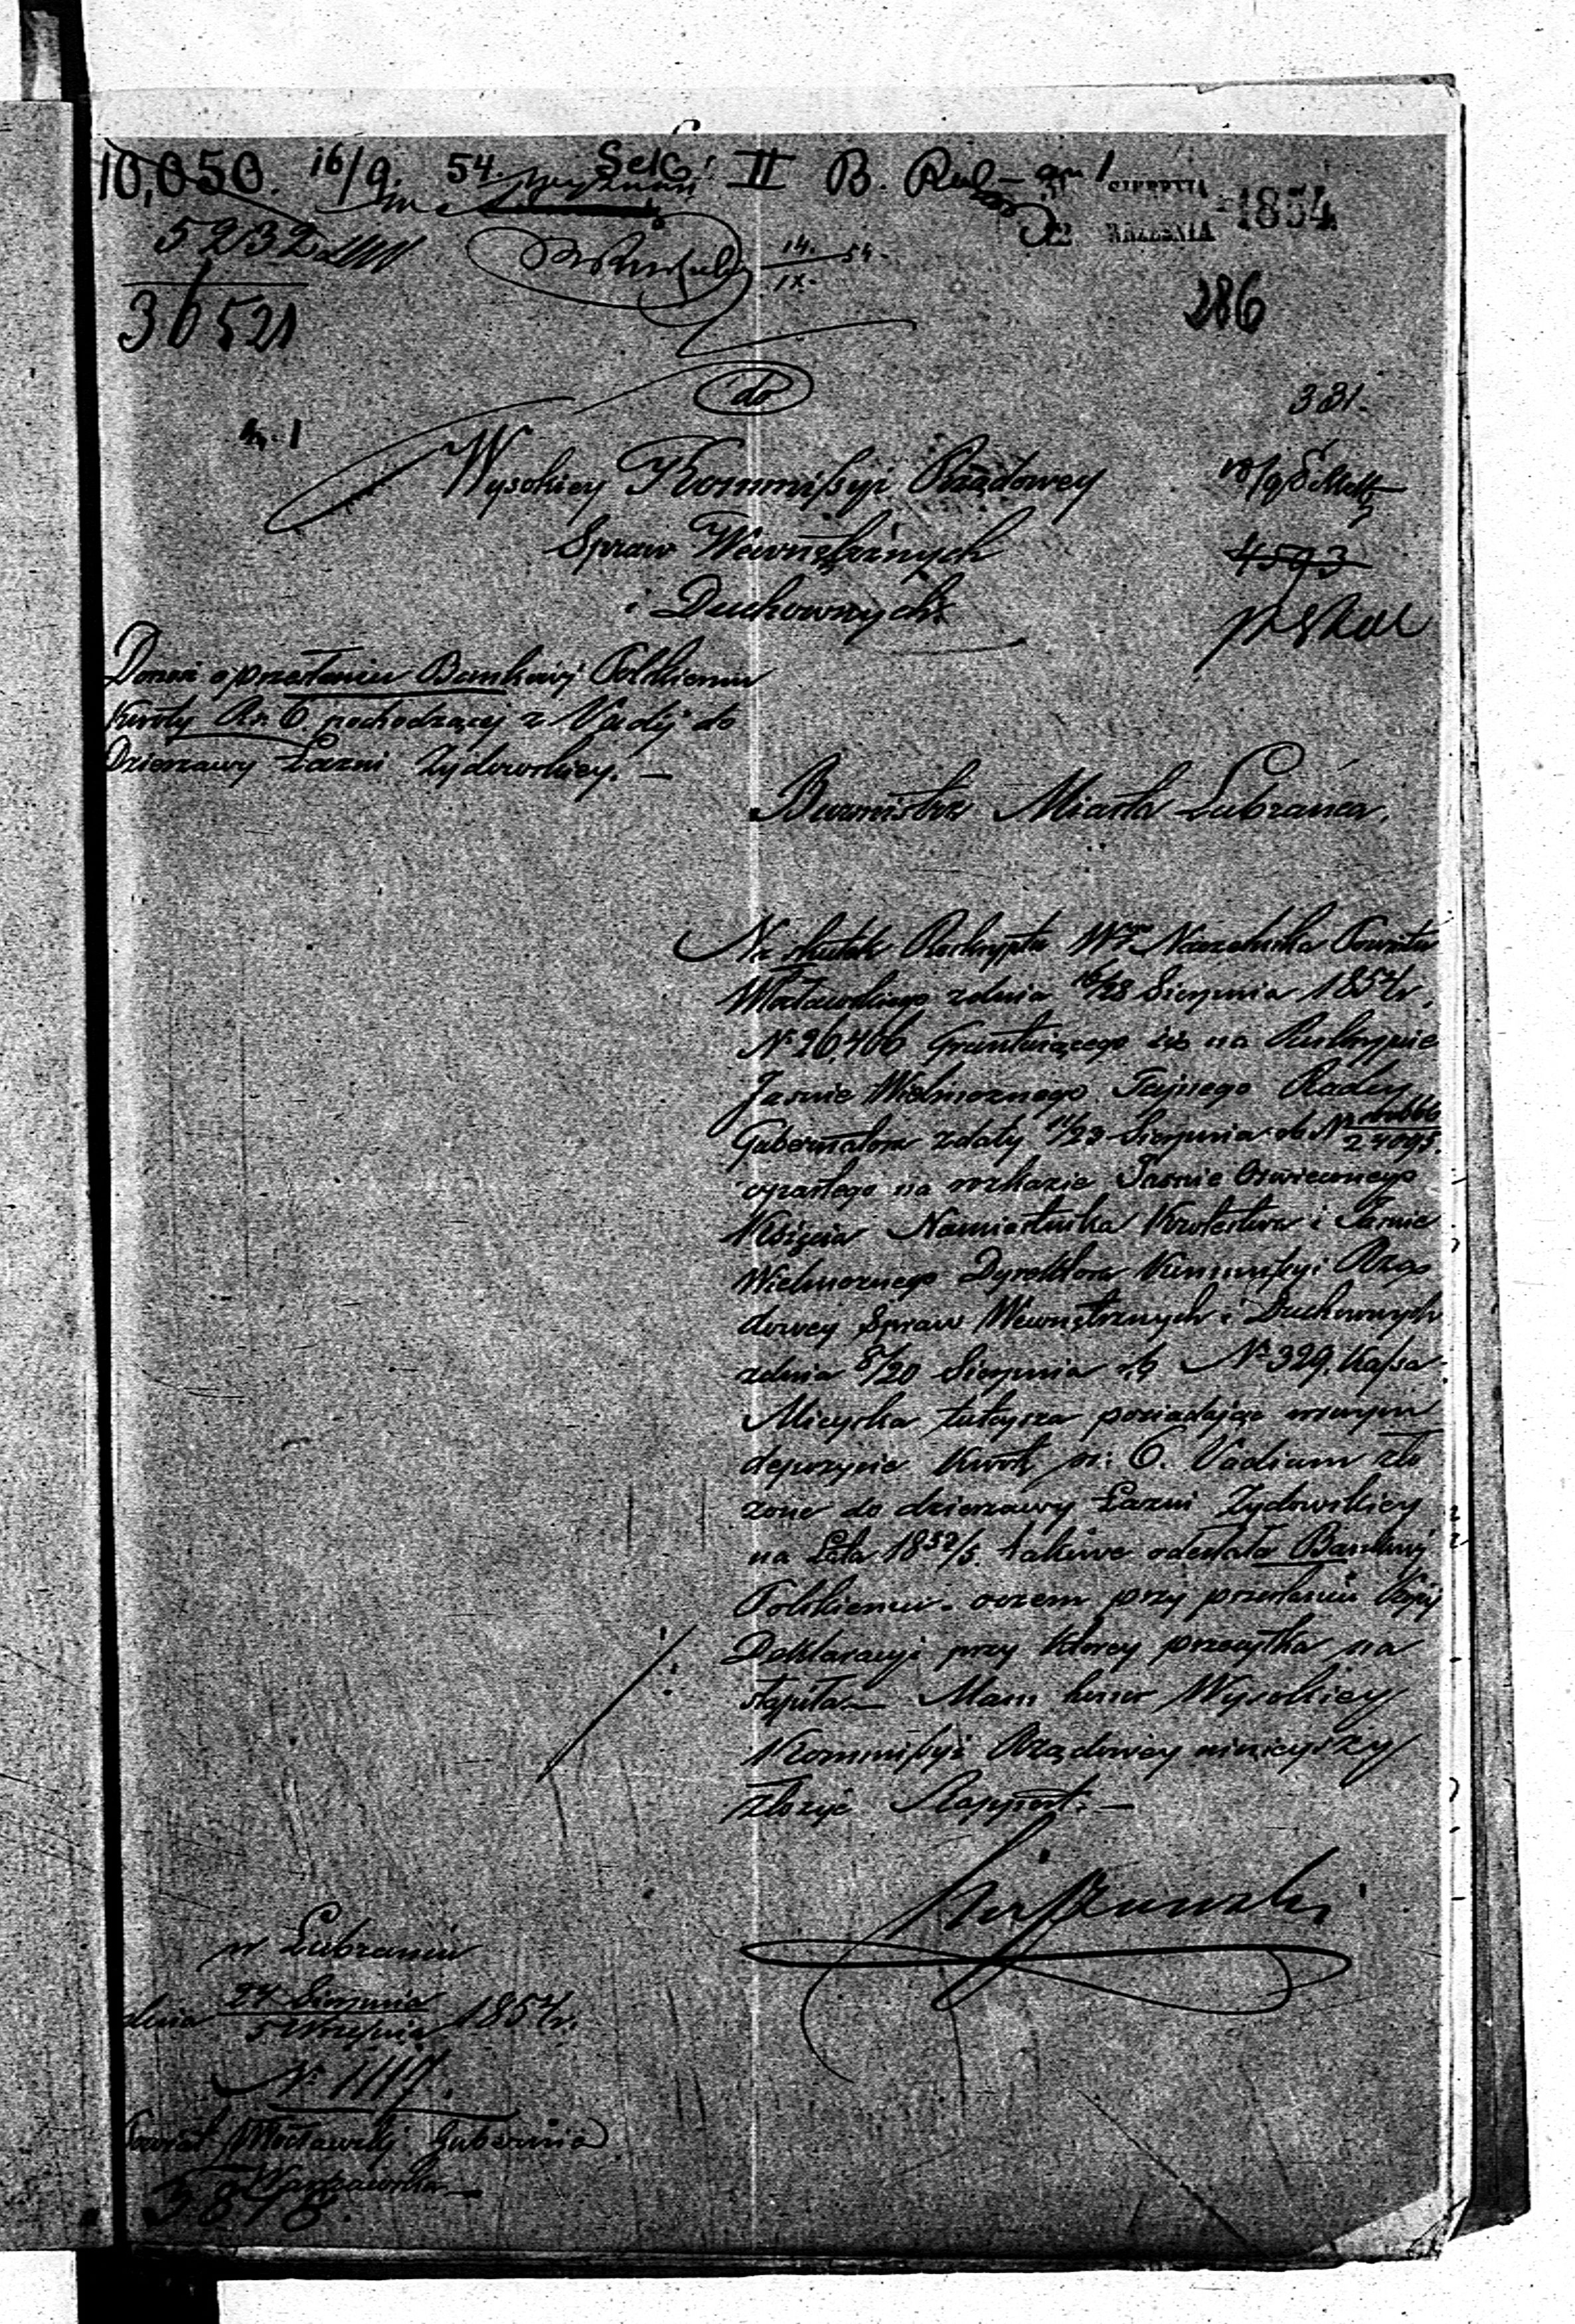 10,050. 16/9. 54. Sek: II B.
5232
36521
14./IX. 54.
SIERPNIA
2 WRZEŚNIA 1854
286
do
381.
Wysokiey Kommissyi Rządowey
Spraw Wewnętrznych
i Duchownych.
4593
Donosi o przesłaniu Bankowi Polskiemu
Kwoty Rs. 6. pochodzącej z Vadij do
Dzierzawy Łazni Zydowskiey. —
Burmistrz Miasta Lubrańca.
Na skutek Reskryptu Wgo Naczelnika Powiatu
Włocławskiego z dnia 16/28 Sierpnia 1854 r.
No 26,406 Gruntuiącego się na Reskrypcie
Jaśnie Wielmoznego Tajnego Radcy
Gubernatora z daty 11/23 Sierpnia ob No 24095.
opartego na rozkazie Jaśnie Oswieconego
Księcia Namiestnika Krolestwa i Jasnie
Wielmoznego Dyrektora Kommissyi Rzą
dowey Spraw Wewnętrznych i Duchownych
z dnia 8/20 Sierpnia r.b. No 329. Kassa
Mieyska tuteysza posiadając w swym
depozycie Kwotę rs: 6. Vadium zło
zone do dzierzawy Łazni Zydowskiey
na Lata 1852/5. takowe odesłała Bankowi
Polskiemu. oczem przy przesłaniu Kopij
Deklaracyi przy ktorey przesyłka na
stąpiła — Mam honor Wysokiey
Kommissyi Rządowey ninieyszy
złozyć Rapport. —
w Lubrańcu
dnia 24 Sierpnia/5 Września 1854 r.
No 1117.
Powiat Włocławski Gubernia
Warszawska —
3878.